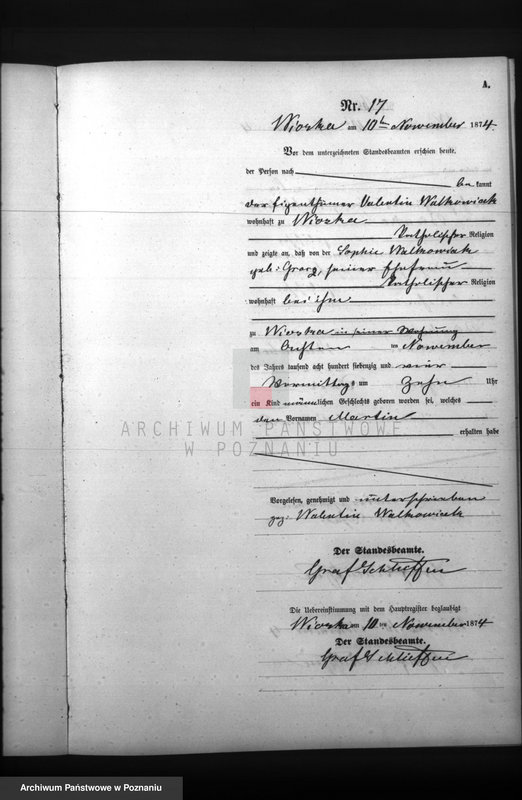 A.
Nr. 17
Wioska am 10ten November 1874.
Vor dem unterzeichneten Standesbeamten erschien heute,
der Person nach
be kannt
der Eigenthümer Valentin Walkowiak
wohnhaft zu Wioska
katholischer Religion
und zeigte an, daß von der Sophie Walkowiak
geb: seiner Ehefrau
katholischer Religion
wohnhaft bei ihm
zu Wioska in seiner Wohnung
am Achten ten November
des Jahres tausend acht hundert siebenzig und vier
Vormittags um Zehn Uhr
ein Kind männlichen Geschlechts geboren worden sei, welches
den Vornamen Martin
erhalten habe
ARCHIWUM PAŃSTWOWE
W POZNANIU
Vorgelesen, genehmigt und unterschrieben
gez: Valentin Walkowiak
Der Standesbeamte.
Graf Schlieffen
Die Uebereinstimmung mit dem Hauptregister beglaubigt
Wioska am 10 ten November 1874
Der Standesbeamte.
Graf Schlieffen
Archiwum Państwowe w Poznaniu